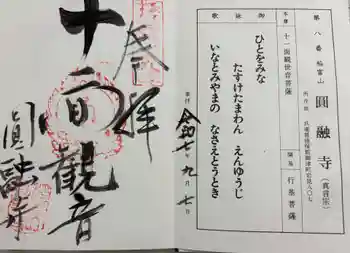 第八番 稲富山
圓融寺
(真言宗)
本尊 十一面観世音菩薩
開基 行基菩薩
御詠歌
ひとをみな
たすけたまわん えんゆうじ
いなとみやまの なさえとうとき
令和七年九月七日
奉拝
十一面観音
圓融寺